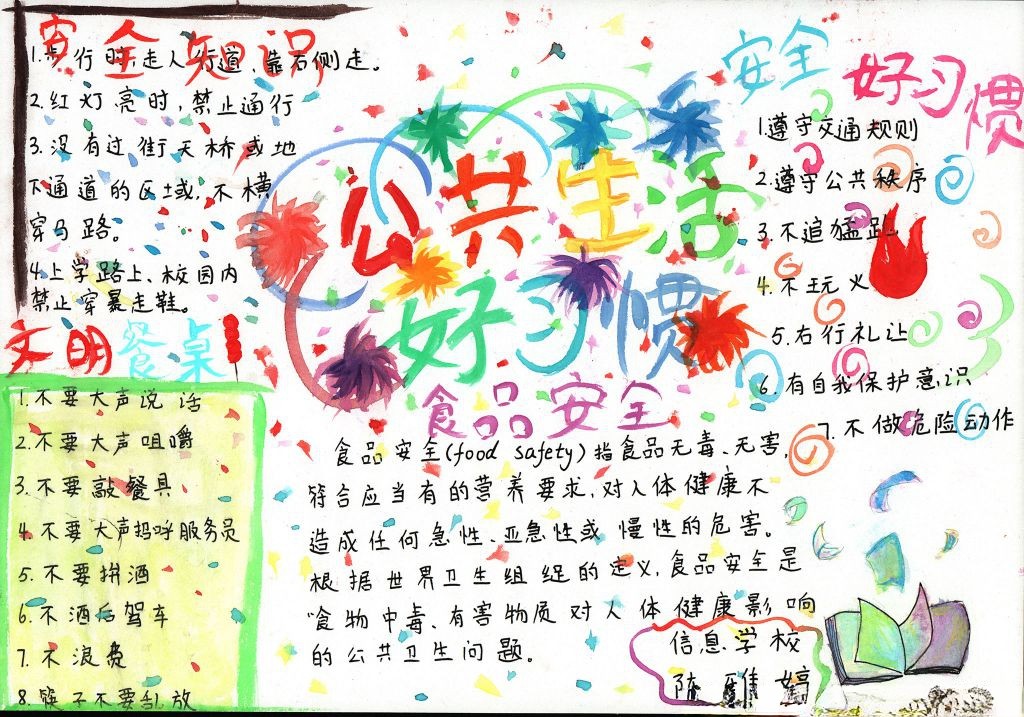 安全知识
1.步行时,走人行道、靠右侧走。
2.红灯亮时,禁止通行
3.没有过街天桥或地
下通道的区域,不横
穿马路。
4.上学路上、校园内
禁止穿暴走鞋。
文明餐桌
1.不要大声说话
2.不要大声咀嚼
3.不要敲餐具
4.不要大声招呼服务员
5.不要拼酒
6.不酒后驾车
7.不浪费
8.筷子不要乱放
公共生活
好习惯
食品安全
食品安全(food safety)指食品无毒、无害,
符合应当有的营养要求,对人体健康不
造成任何急性、亚急性或慢性的危害。
根据世界卫生组织的定义,食品安全是
食物中毒、有害物质对人体健康影响
的公共卫生问题。
安全好习惯
1.遵守交通规则
2.遵守公共秩序
3.不追猛跑
4.不玩火
5.右行礼让
6.有自我保护意识
7.不做危险动作
信息学校
陈雅婷